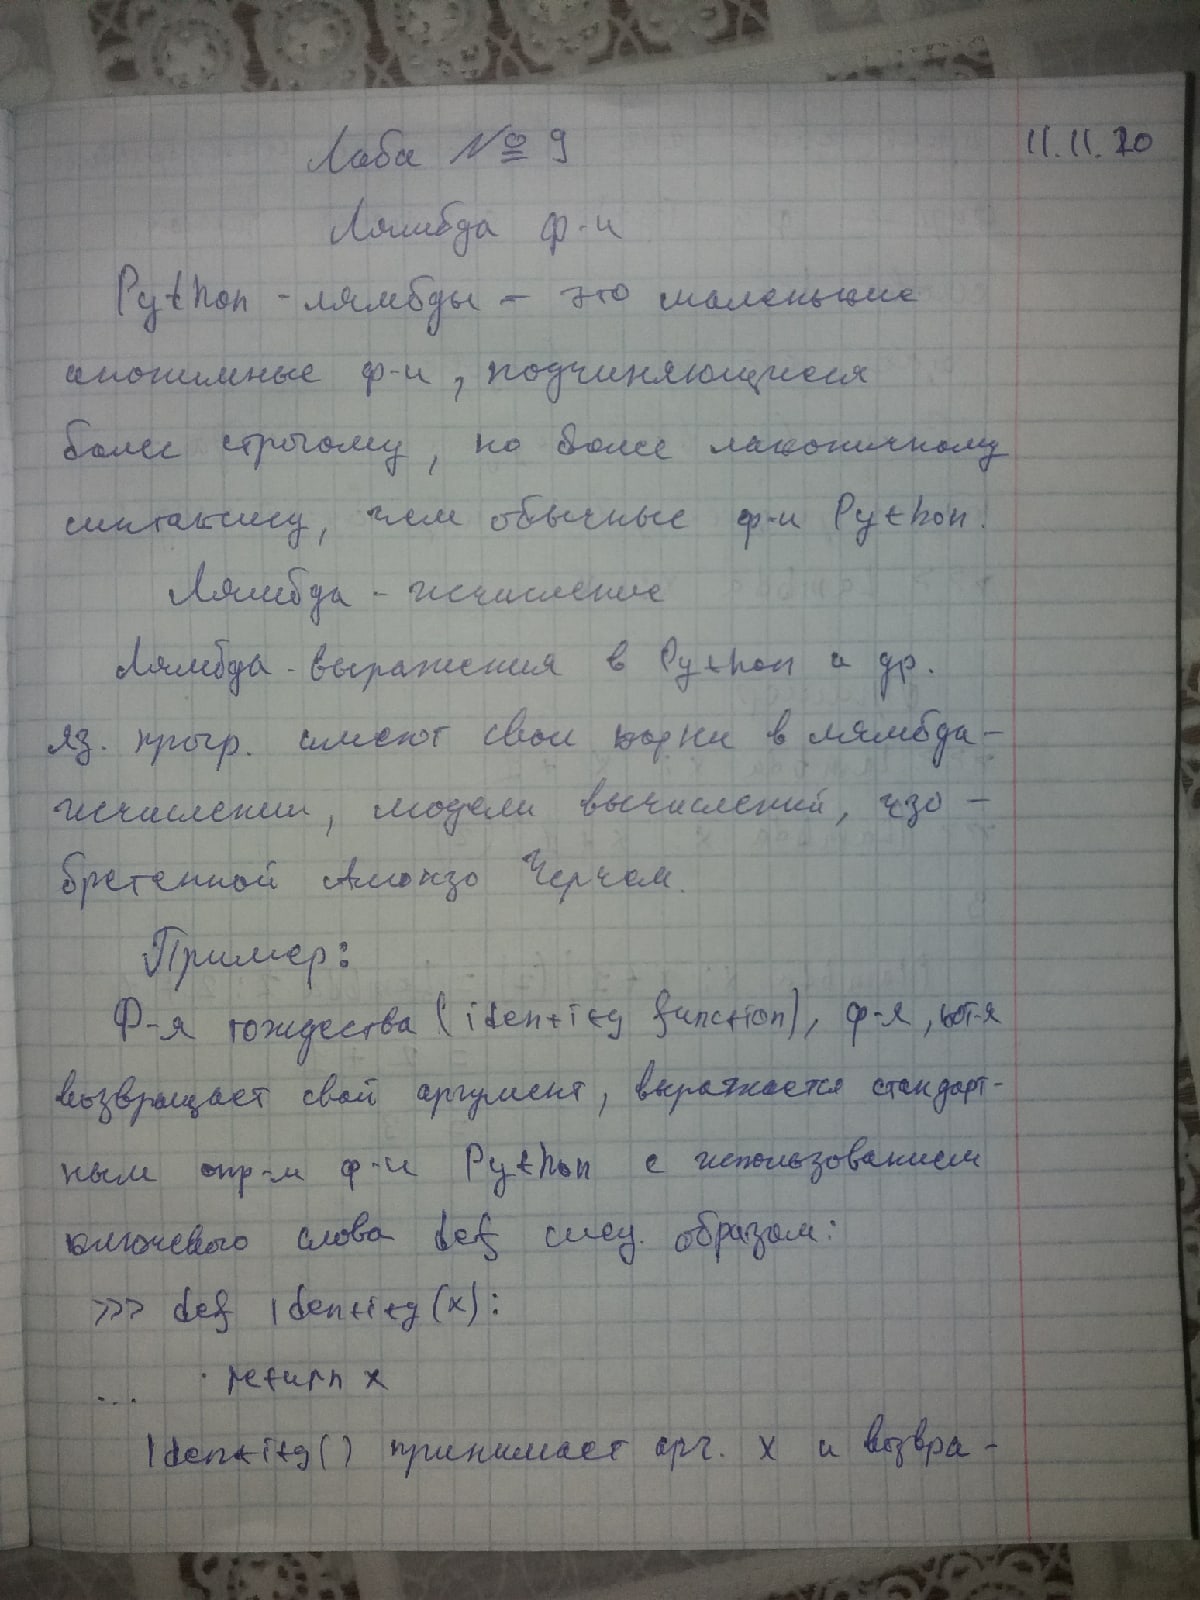 Лаба № 9
11.11.20
Лямбда ф-и
Python - лямбды - это маленькие
анонимные ф-и, подчиняющиеся
более строгому, но более лаконичному
синтаксису, чем обычные ф-и Python.
Лямбда - исчисление
Лямбда - выражения в Python и др.
яз. прогр. имеют свои корни в лямбда-
исчислении, модели вычислений, изо-
бретенной Алонзо Черчем.
Пример:
Ф-я тождества (identity function), ф-я, кот-я
возвращает свой аргумент, выражается стандарт-
ным опр-м ф-и Python с использованием
ключевого слова def след. образом:
>>> def identity(x):
... return x
identity() принимает арг. x и возвра-